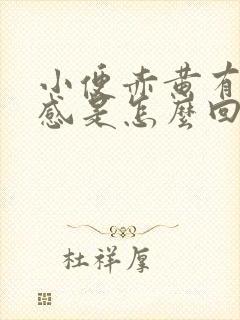 小便赤黄有
感是怎麼回
杜祥厚